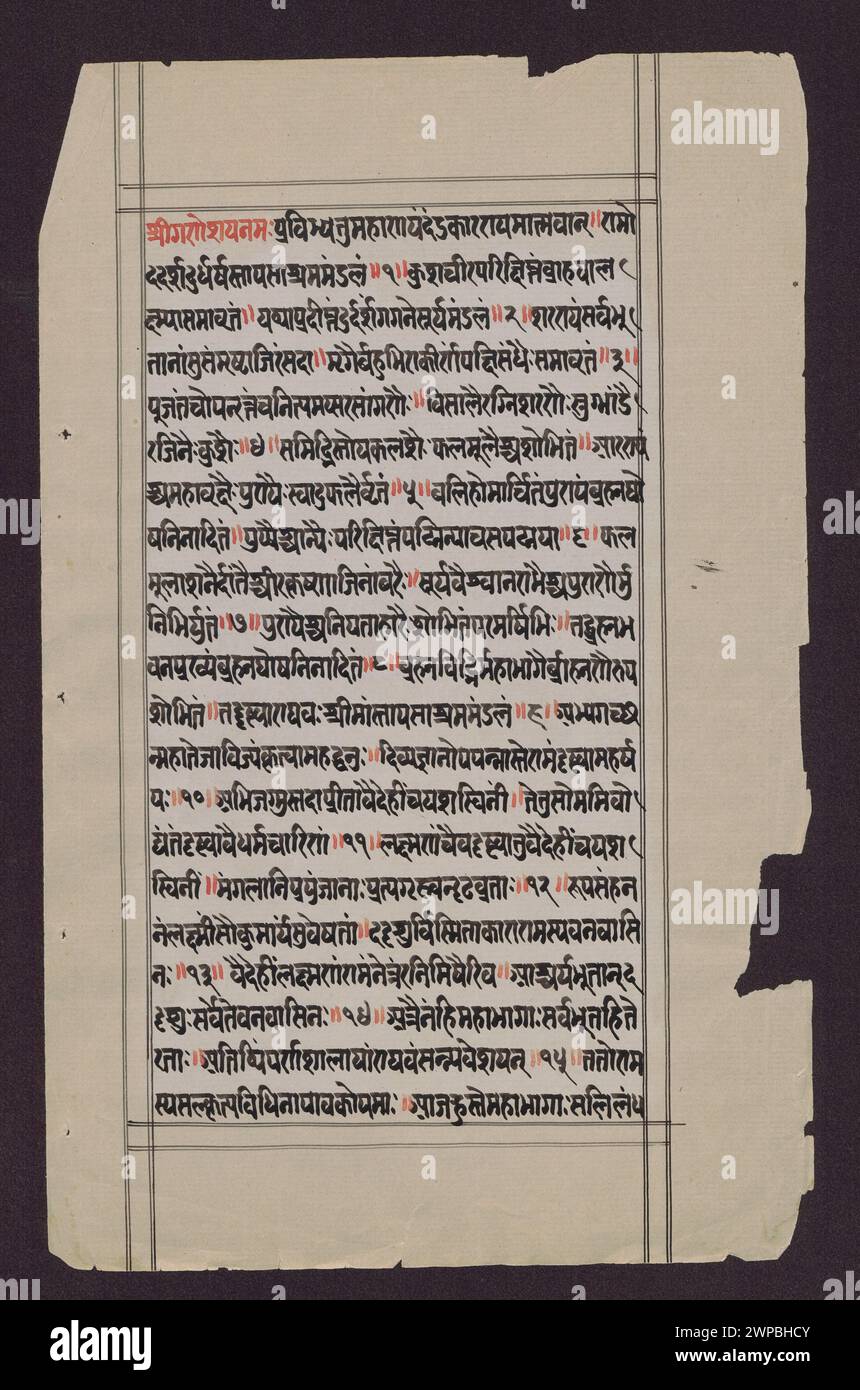 श्रीगणेशयनमः प्रविभ्यतुमहारण्यंदंडकारण्यमात्मवान् ॥ रामो
ददर्शदुर्धर्षस्तापसाश्रममंडलं ॥ १ ॥ कुशचीरपरिक्षिप्तंब्राह्म्याल
क्ष्म्यासमावृतं ॥ यथाप्रदीप्तंदुर्दर्शंगगनेसूर्यमंडलं ॥ २ ॥ शरण्यंसर्वभू
तानांसुसंमृष्टाजिरंसदा ॥ मृगैर्बहुभिराकीर्णंपक्षिसंघैः समावृतं ॥ ३ ॥
पूजतंचोपनृत्तंचनित्यमप्सरसांगणैः ॥ विसालैरग्निशरणैः स्रुग्भांडै
रजिनैः कुशैः ॥ ४ ॥ समिद्भिस्तोयकलशैः फलमूलैश्चशोभितं ॥ आरण्यै
श्चमहावृक्षैः पुण्यैः स्वादुफलैर्वृतं ॥ ५ ॥ बलिहोमार्चितंपुण्यंब्रह्मघो
षनिनादितं ॥ पुष्पैश्चान्यैः परिक्षिप्तंपद्मिन्याचसपद्मया ॥ ६ ॥ फल
मूलाशनैर्दांतैश्चीरकृष्णाजिनांबरैः ॥ सूर्यवैश्वानराभैश्चपुराणैर्मु
निभिर्युतं ॥ ७ ॥ पुण्यैश्चनियताहारैः शोभितंपरमर्षिभिः ॥ तद्ब्रह्मभ
वनप्रख्यंब्रह्मघोषनिनादितं ॥ ८ ॥ ब्रह्मविद्भिर्महाभागैर्ब्राह्मणैरुप
शोभितं ॥ तद्दृष्ट्वाराघवः श्रीमांस्तापसाश्रममंडलं ॥ ९ ॥ अभ्यगच्छ
न्महातेजाविज्यंकृत्वामहद्धनुः ॥ दिव्यज्ञानोपपन्नास्तेरामंदृष्ट्वामहर्ष
यः ॥ १० ॥ अभिजग्मुस्तदाप्रीतावैदेहींचयशस्विनीं ॥ तेतुसोममिवो
द्यंतंदृष्ट्वावैधर्मचारिणं ॥ ११ ॥ लक्ष्मणंचैवदृष्ट्वातुवैदेहींचयश
स्विनीं ॥ मंगलानिप्रयुंजानाः प्रत्यगृह्णन्दृढव्रताः ॥ १२ ॥ रूपसंहन
नंलक्ष्मीसौकुमार्यंसुवेषतां ॥ ददृशुर्विस्मिताकारारामस्यवनवासि
नः ॥ १३ ॥ वैदेहींलक्ष्मणंरामंनेत्रैरनिमिषैरिव ॥ आश्चर्यभूतान्द
दृशुः सर्वेतेवनवासिनः ॥ १४ ॥ अत्रैनंहिमहाभागाः सर्वभूतहिते
रताः ॥ अतिथिंपर्णशालायांराघवंसंन्यवेशयन् ॥ १५ ॥ ततोराम
स्यसत्कृत्यविधिनापावकोपमाः ॥ आजह्रुस्तेमहाभागाः सलिलंध
alamy
Image ID: 2WPBHCY
www.alamy.com